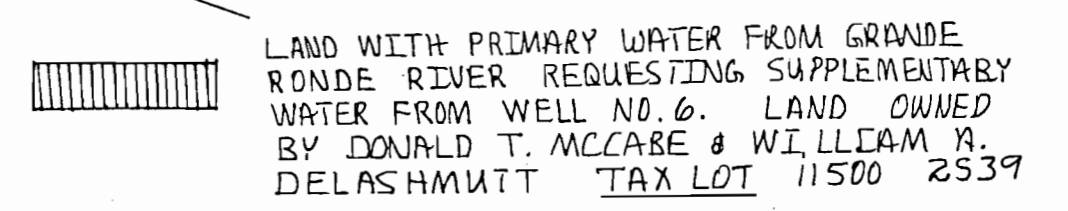 LAND WITH PRIMARY WATER FROM GRANDE
RONDE RIVER REQUESTING SUPPLEMENTARY
WATER FROM WELL NO. 6. LAND OWNED
BY DONALD T. MCCABE & WILLIAM A.
DELASHMUTT TAX LOT 11500 2S39